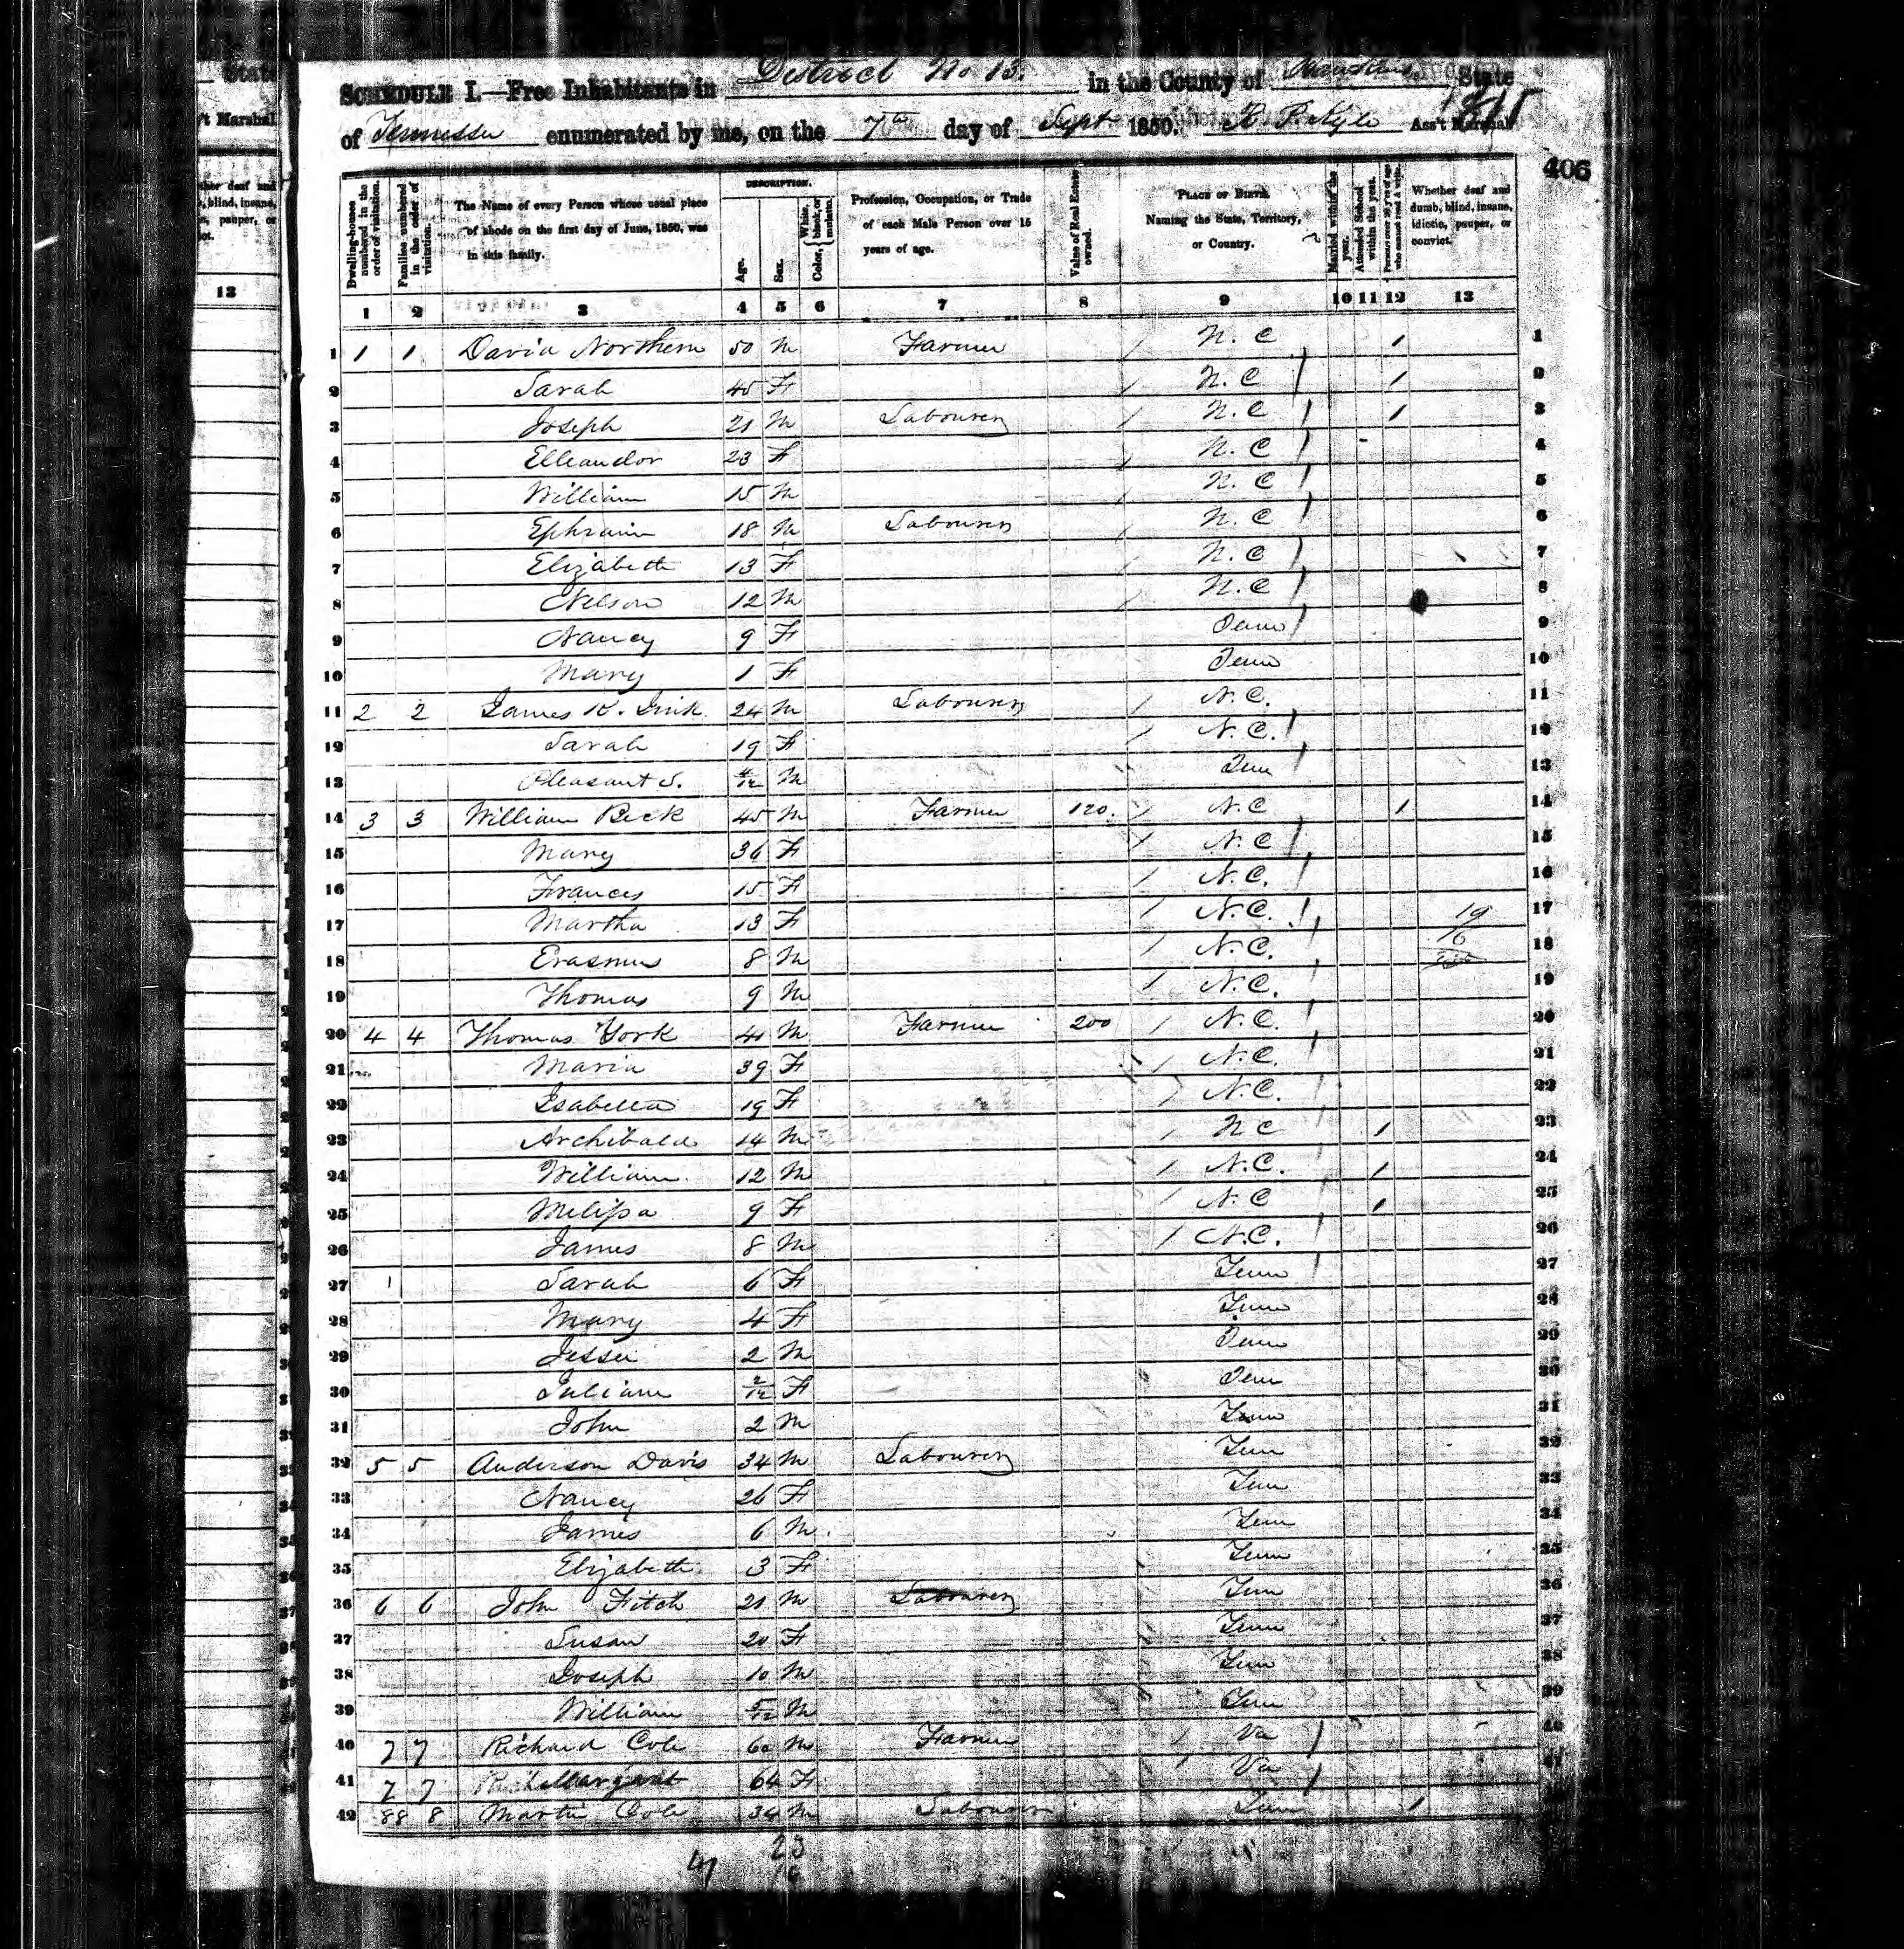 State
't Marshal
13
SCHEDULE I.—Free Inhabitants in District No 13. in the County of Hawkins State
of Tennessee enumerated by me, on the 7th day of Sept 1850. Ass't Marshal
406
Dwelling-houses numbered in the order of visitation.
Families numbered in the order of visitation.
The Name of every Person whose usual place of abode on the first day of June, 1850, was in this family.
DESCRIPTION.
Age.
Sex.
Color, White, black, or mulatto.
Profession, Occupation, or Trade of each Male Person over 15 years of age.
Value of Real Estate owned.
PLACE OF BIRTH. Naming the State, Territory, or Country.
Married within the year.
Attended School within the year.
Persons over 20 y'rs of age who cannot read & write.
Whether deaf and dumb, blind, insane, idiotic, pauper, or convict.
1 2 3 4 5 6 7 8 9 10 11 12 13
1 1 1 David Northern 50 M Farmer N. C 1 1
2 Sarah 45 F N. C 1 2
3 Joseph 21 M Labourer N. C 1 3
4 Elleandor 23 F N. C 4
5 William 15 M N. C 5
6 Ephraim 18 M Labourer N. C 6
7 Elizabeth 13 F N. C 7
8 Nelson 12 M N. C 8
9 Nancy 9 F Tenn 9
10 Mary 1 F Tenn 10
11 2 2 James K. 24 M Labourer N. C. 11
12 Sarah 19 F N. C. 12
13 Pleasant S. 4/12 M Tenn 13
14 3 3 William Peck 45 M Farmer 120. N. C 1 14
15 Mary 36 F N. C 15
16 Frances 15 F N. C. 16
17 Martha 13 F N. C. 17
18 Erasmus 8 M N. C. 18
19 Thomas 9 M N. C. 19
20 4 4 Thomas York 41 M Farmer 200 N. C. 20
21 Maria 39 F N. C. 21
22 Isabella 19 F N. C. 22
23 Archibald 14 M N C 1 23
24 William 12 M N. C. 1 24
25 Melissa 9 F N. C 1 25
26 James 8 M N. C. 26
27 Sarah 6 F Tenn 27
28 Mary 4 F Tenn 28
29 Jesse 2 M Tenn 29
30 Juliann 2/12 F Tenn 30
31 John 2 M Tenn 31
32 5 5 Anderson Davis 34 M Labourer Tenn 32
33 Nancy 26 F Tenn 33
34 James 6 M Tenn 34
35 Elizabeth 3 F Tenn 35
36 6 6 John Fitch 21 M Labourer Tenn 36
37 Susan 20 F Tenn 37
38 Joseph 10 M Tenn 38
39 William 5/12 M Tenn 39
40 7 7 Richard Cole 60 M Farmer Va 40
41 7 7 Margaret 64 F Va 41
42 88 8 Martin Cole 34 M Labourer Tenn 1
23